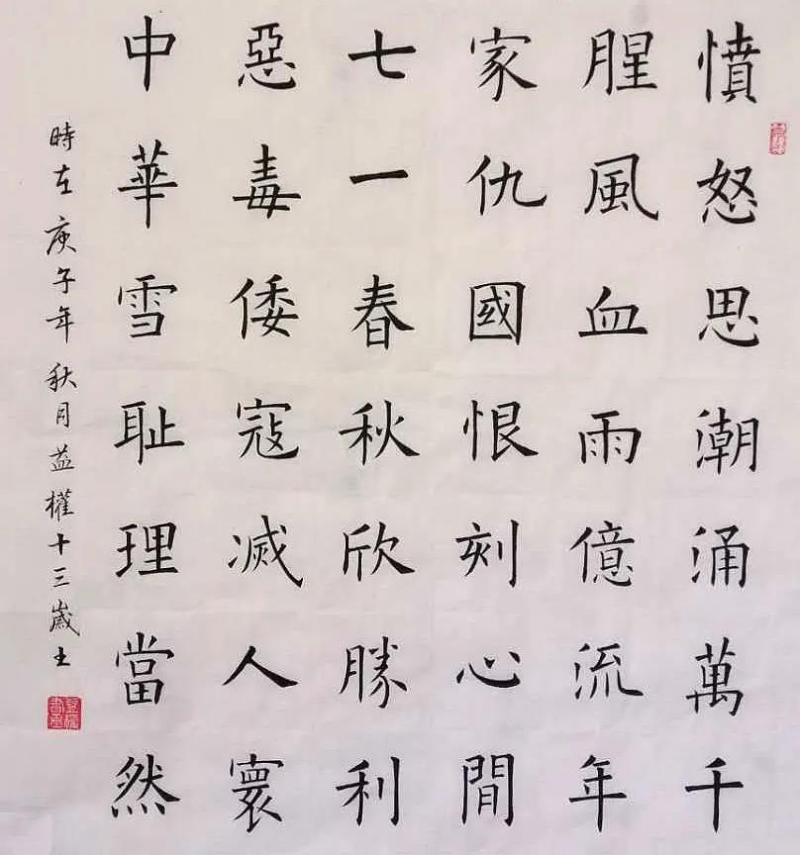 憤怒思潮涌萬千
腥風血雨億流年
家仇國恨刻心間
七一春秋欣勝利
惡毒倭寇滅人寰
中華雪恥理當然
時在庚子年秋月益權十三歲書